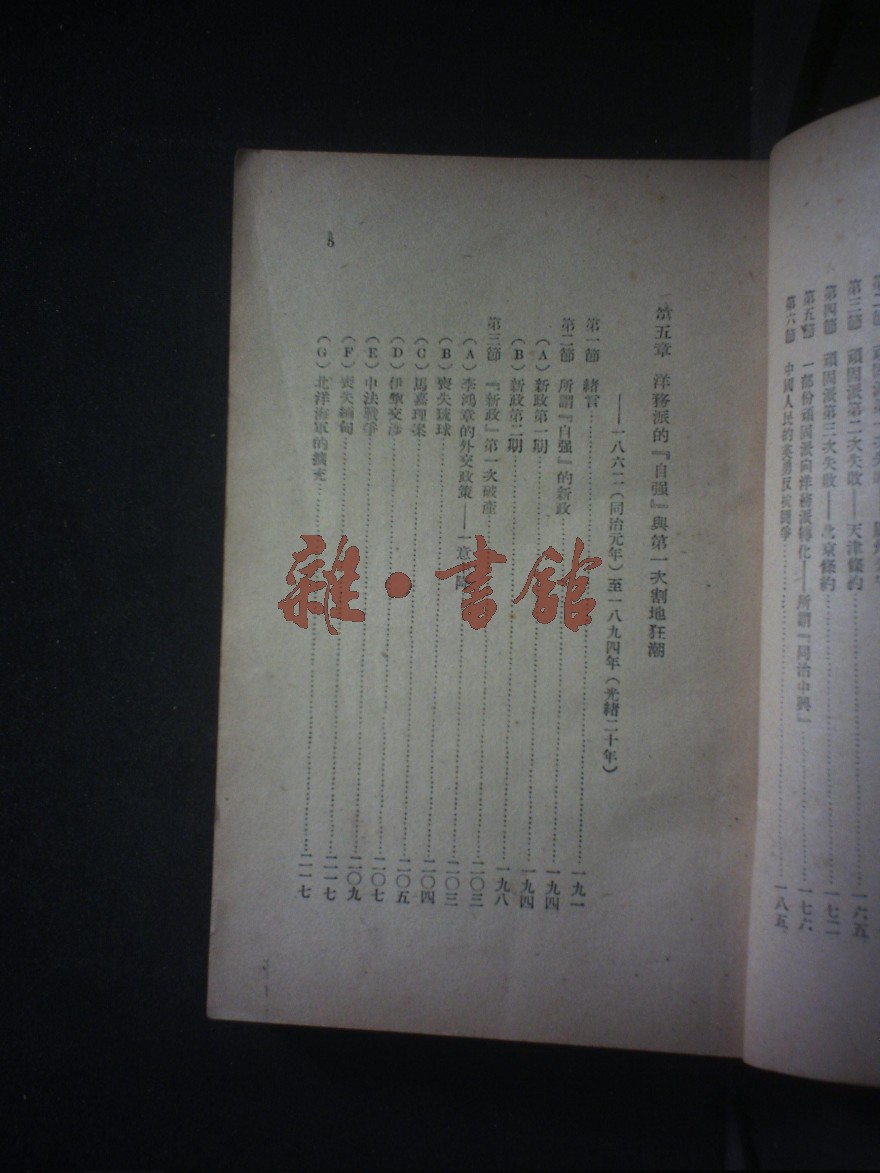 第三節 頑固派第二次失敗——天津條約……一六五
第四節 頑固派第三次失敗——北京條約……一七二
第五節 一部份頑固派向洋務派轉化——所謂『同治中興』……一七六
第六節 中國人民的英勇反抗鬥爭……一八五
第五章 洋務派的『自强』與第一次割地狂潮
——一八六二(同治元年)至一八九四年(光緒二十年)
第一節 緒言……一九一
第二節 所謂『自强』的新政……一九四
(A)新政第一期……一九四
(B)新政第二期……一九八
第三節 『新政』第一次破產……二〇三
(A)李鴻章的外交政策——一意
(B)喪失琉球……二〇四
(C)馬嘉理案……二〇五
(D)伊犂交涉……二〇七
(E)中法戰爭……二〇九
(F)喪失緬甸……二一七
(G)北洋海軍的擴充……二一七
5
雜·書館